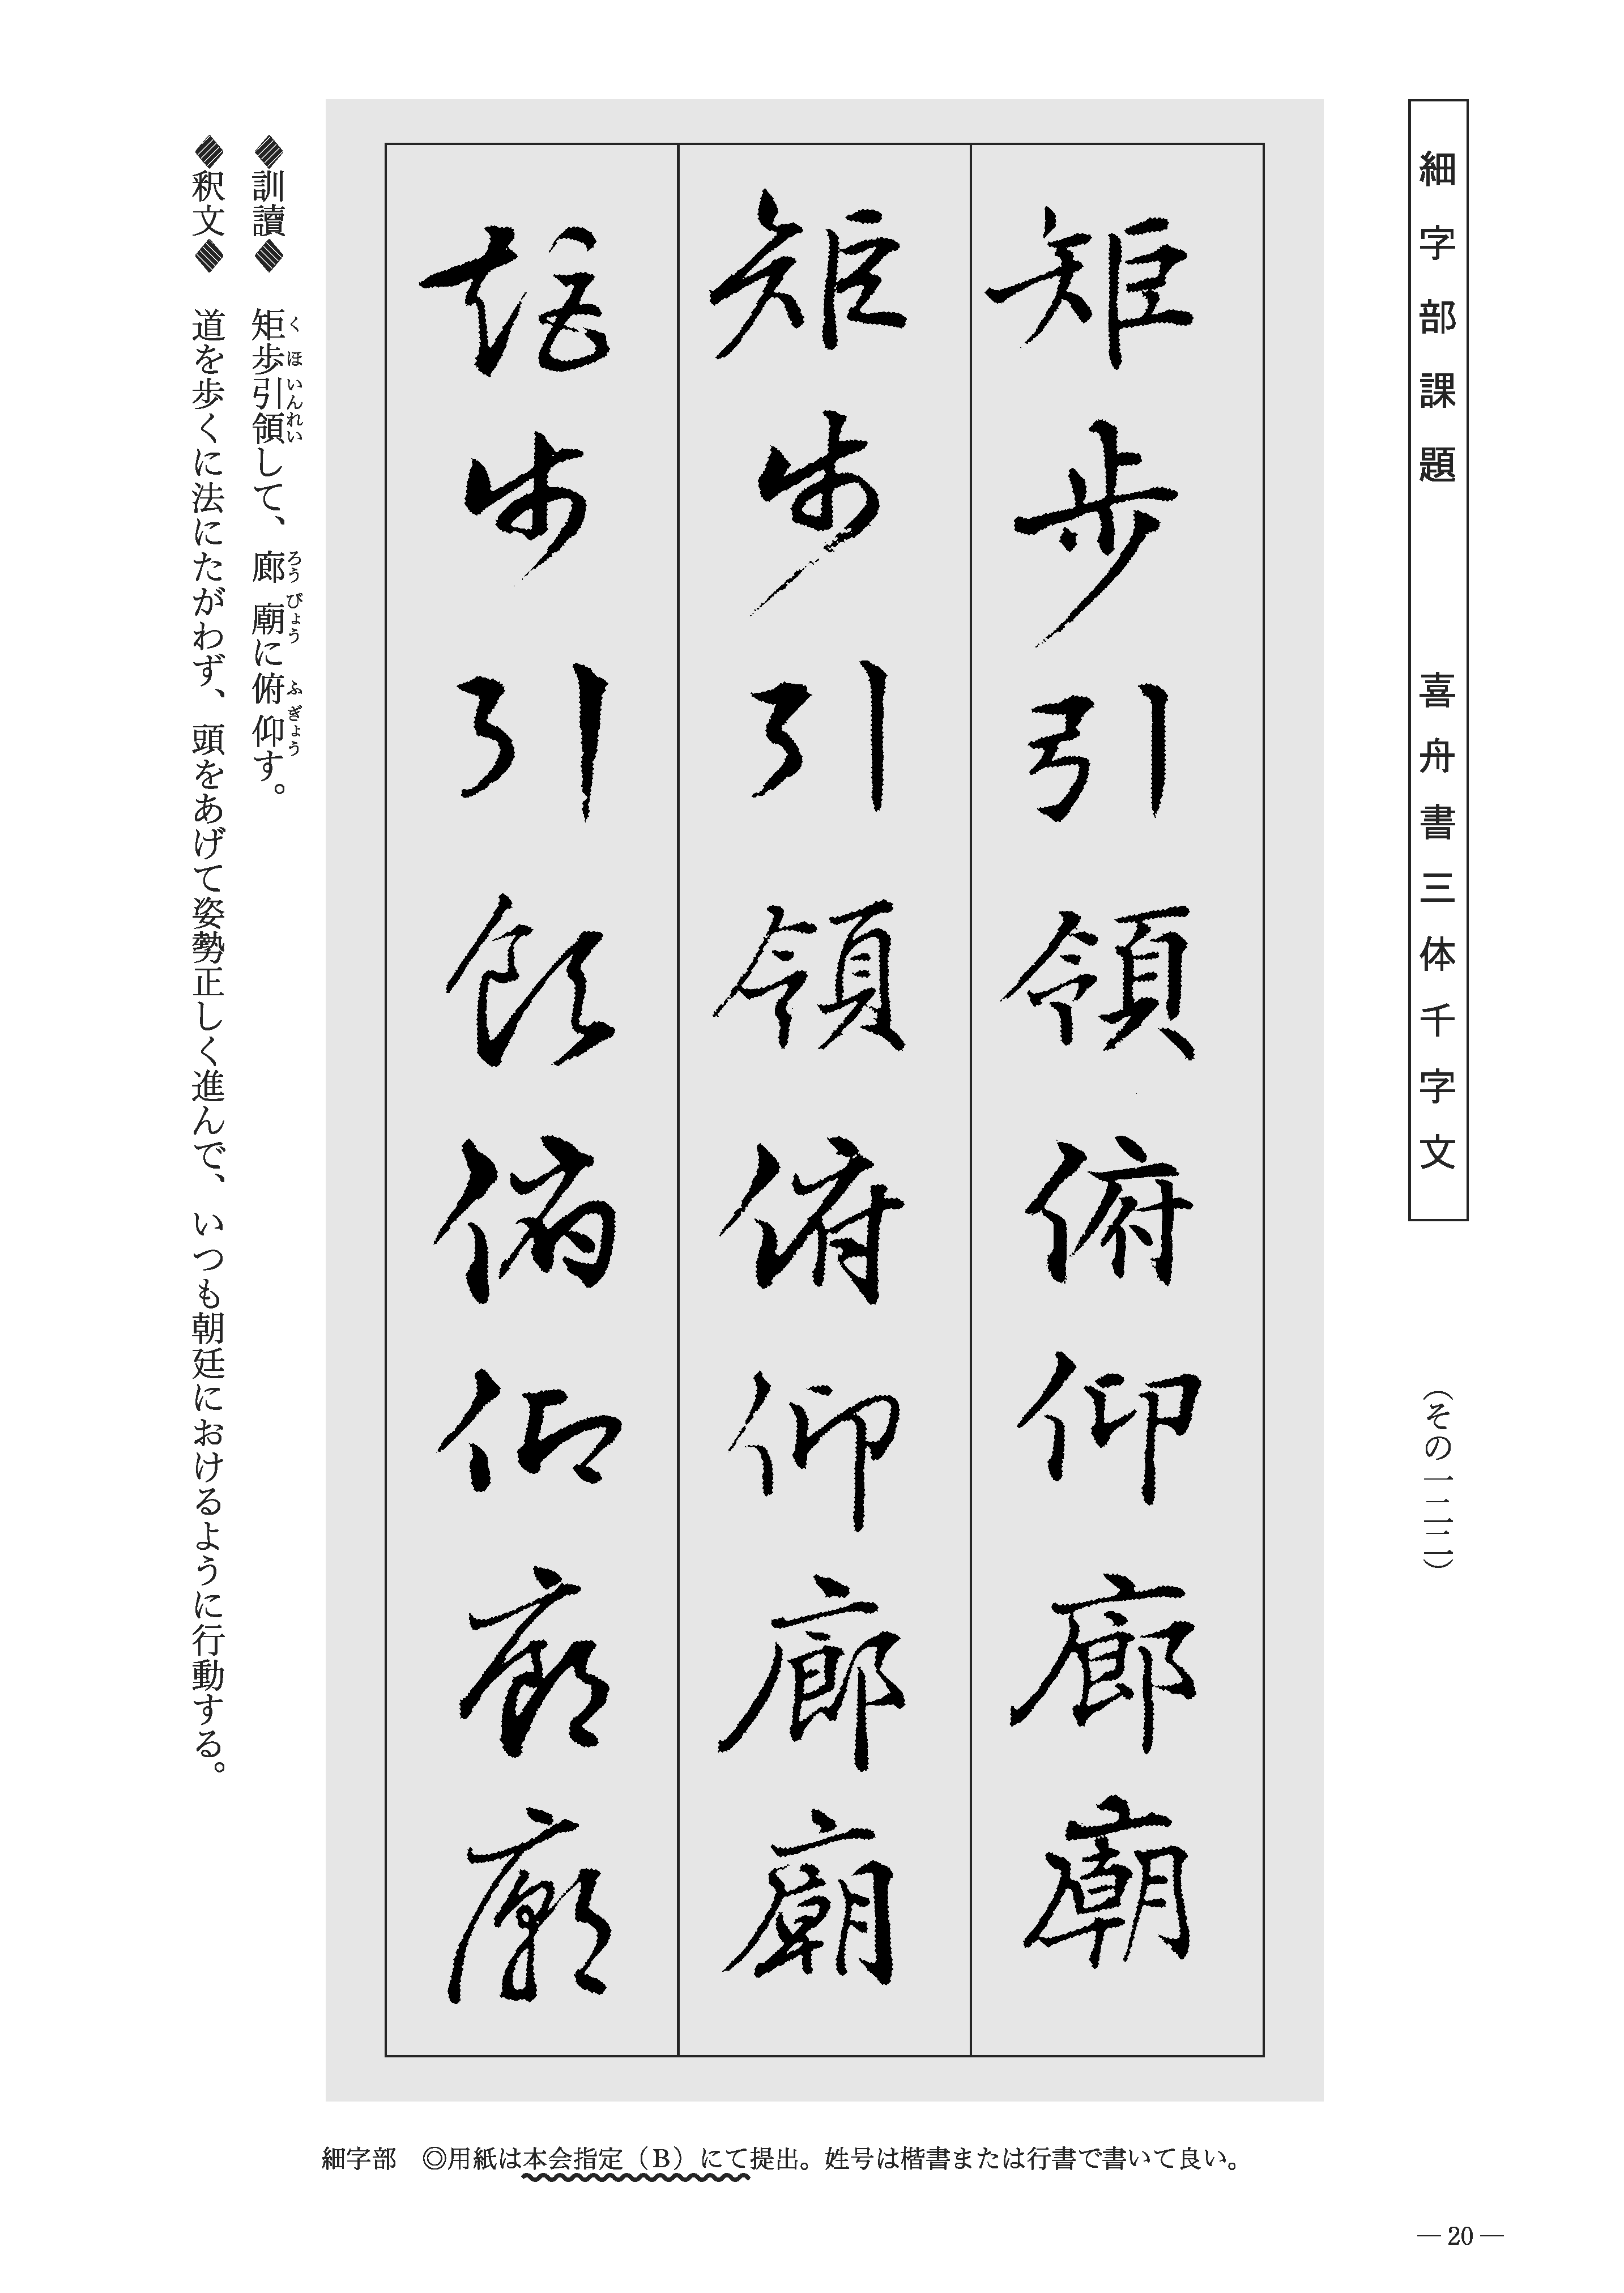 細字部課題 喜舟書三体千字文 （その一二二）
矩歩引領俯仰廊廟
矩歩引領俯仰廊廟
矩歩引領俯仰廊廟
◆訓讀◆ 矩歩引領して、廊廟に俯仰す。
く ほ いんれい ろう びょう ふ ぎょう
◆釈文◆ 道を歩くに法にたがわず、頭をあげて姿勢正しく進んで、いつも朝廷におけるように行動する。
細字部 ◎用紙は本会指定（B）にて提出。姓号は楷書または行書で書いて良い。
— 20 —